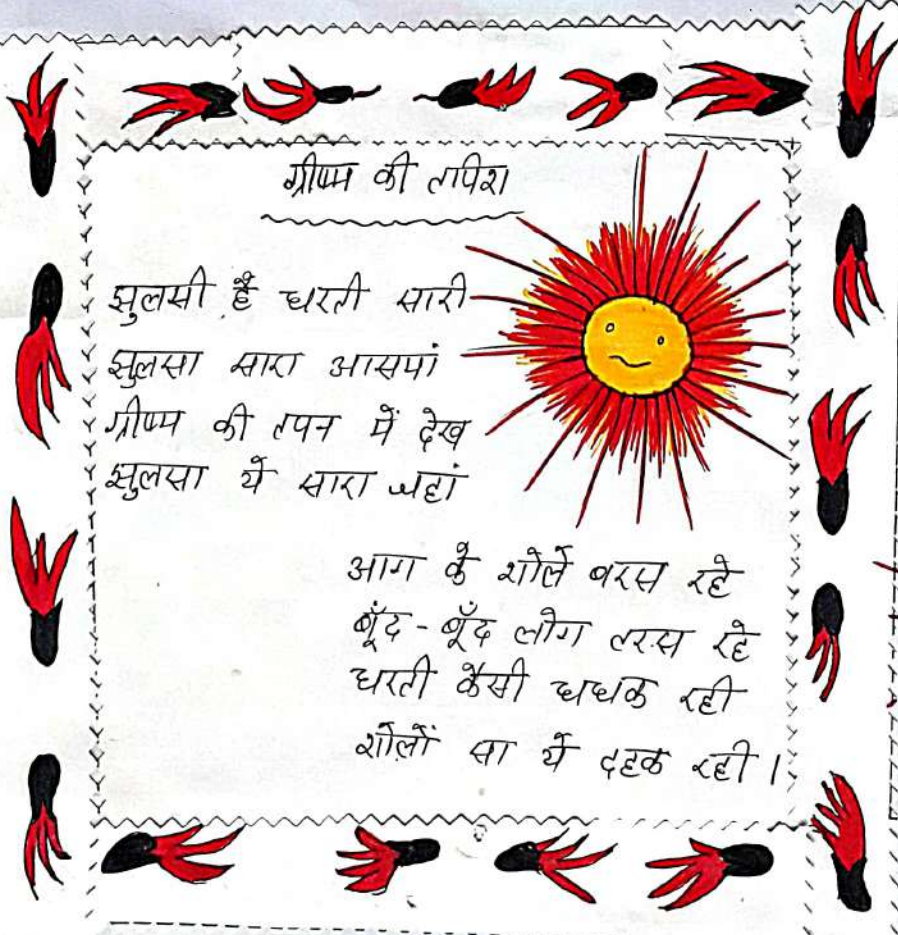 ग्रीष्म की तपिश
झुलसी है धरती सारी
झुलसा सारा आसमां
ग्रीष्म की तपन में देख
झुलसा ये सारा जहां
आग के शोले बरस रहे
बूँद-बूँद लोग तरस रहे
धरती कैसी धधक रही
शोलों सा ये दहक रही।